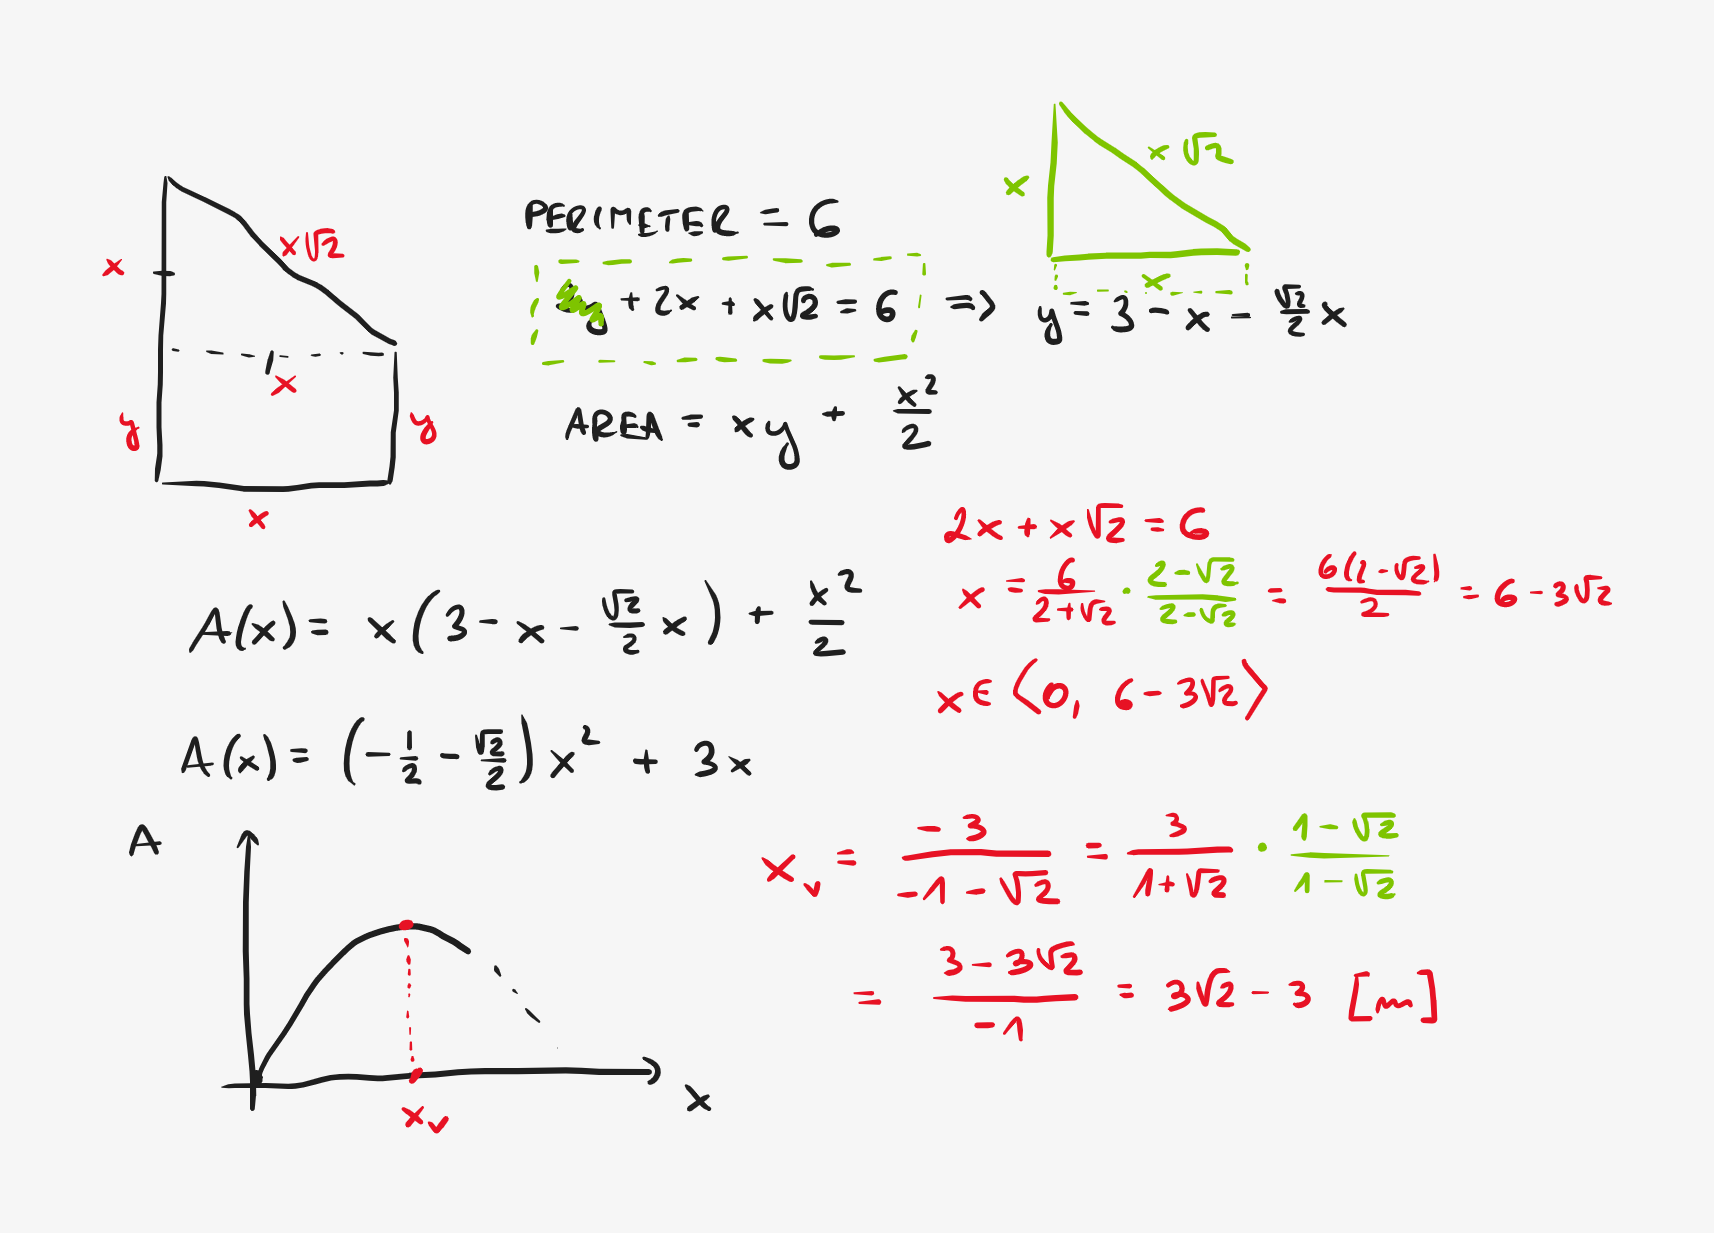 x
x√2
x
y
y
x
x
x√2
x
PERIMETER = 6
y + 2x + x√2 = 6 => y = 3 - x - √2/2 x
AREA = xy + x²/2
2x + x√2 = 6
x = 6/(2+√2) · (2-√2)/(2-√2) = 6(2-√2)/2 = 6 - 3√2
x ∈ ⟨0, 6 - 3√2⟩
A(x) = x(3 - x - √2/2 x) + x²/2
A(x) = (-1/2 - √2/2) x² + 3x
A
x
xᵥ
xᵥ = -3/(-1 - √2) = 3/(1+√2) · (1-√2)/(1-√2)
= (3 - 3√2)/-1 = 3√2 - 3 [m]